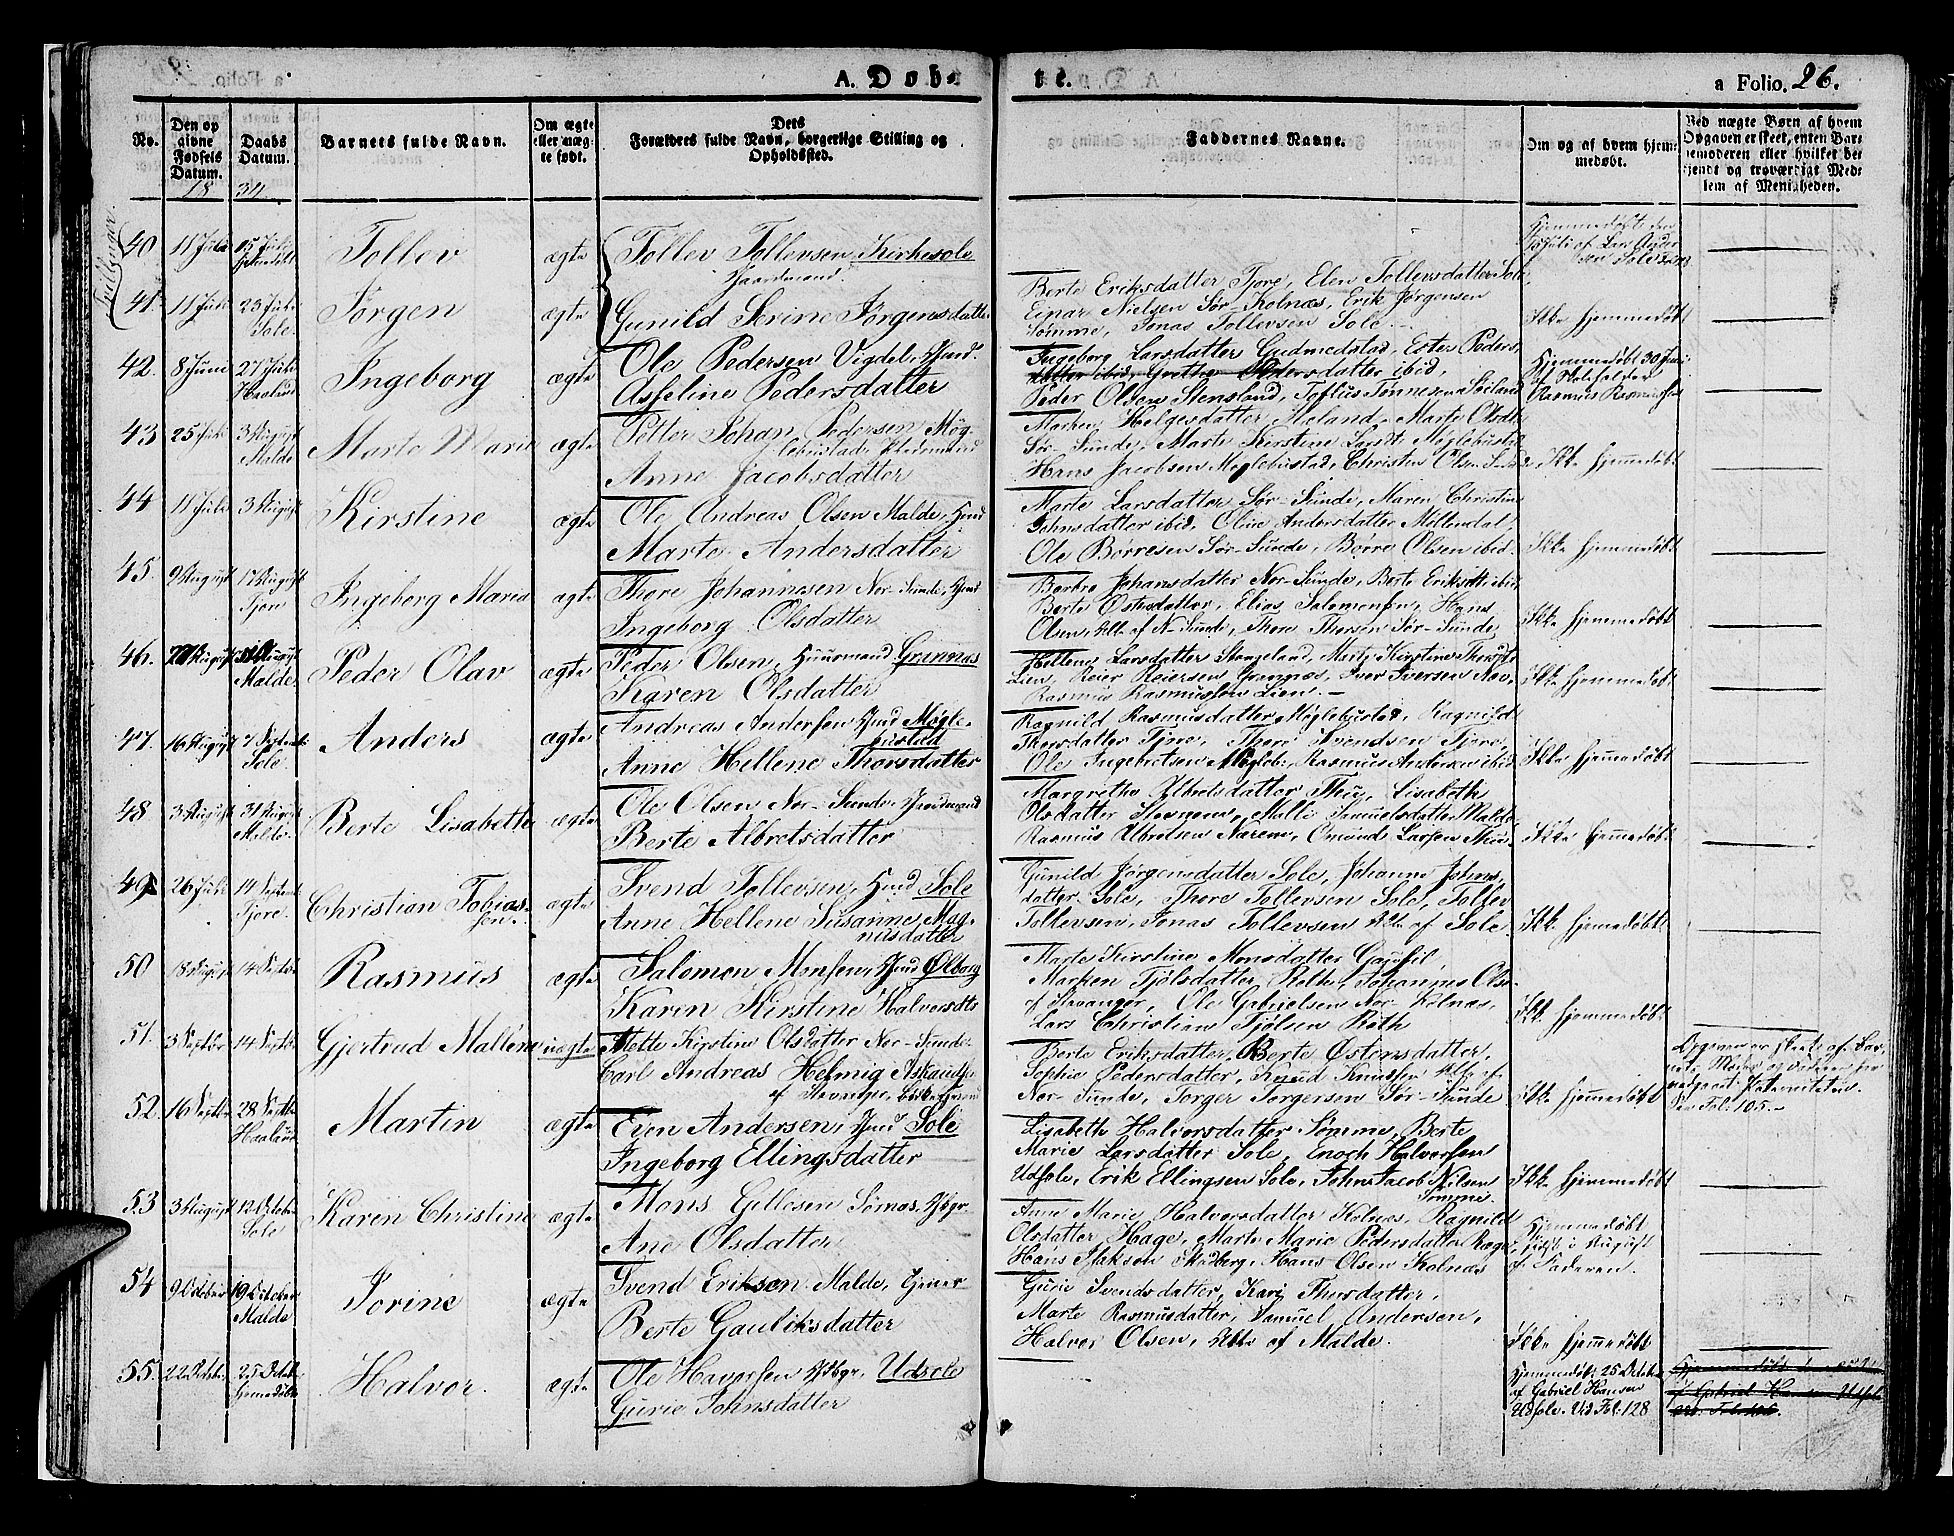 A. Døb-
te.
a Folio. 26.
No.
Den op
givne
Fødsels
Datum.
Daabs
Datum.
Barnets fulde Navn.
Om ægte
eller uæg-
te født.
Dets
Forældres fulde Navn, borgerlige Stilling og
Opholdssted.
Faddernes Navne.
Om og af hvem hjem-
medøbt.
Ved uægte Børn af hvem
Opgaven er skeet, enten Bar-
nemoderen eller hvilket be-
kjendt og troværdigt Med-
lem af Menigheden.
18 34
Tvillinger
40 11 Juli 15 Juli
hjemmedøbt
Tollev
ægte
Tollev Tollevsen Kirkesole
Gaardmand
Hjemmedøbt den
15 Juli af Lars
Sole
41. 11 Juli 23 Juli
Sole
Jørgen
ægte
Gunild Serine Jørgensdatter
Berte Eriksdatter Tjore, Elen Tollevsdatter Sole,
Einar Nielsen Sør-Kolnæs, Erik Jørgensen
Sømme, Jonas Tollevsen Sole.
Ikke hjemmedøbt
42. 8 Juni 27 Juli
Haaland
Ingeborg
ægte
Ole Pedersen Vigdel,
Asseline Pedersdatter
Ingeborg Larsdatter Gudmedstad, Ester Peders-
datter ibid, Grethe Pedersdatter ibid,
Peder Olsen Stensland, Tollius Tønnesen Seiland
Hjemmedøbt 30 Juni
af Skoleholder
Rasmus Rasmussen
43 25 Juli 3 August
Malde
Marte Marie
ægte
Petter Johan Pedersen Møg-
lebustad,
Anne Jacobsdatter
Marken Helgesdatter Meland, Marte Olsdtr
Sør-Sunde, Marte Kirstine Larsdt Møglebustad
Hans Jacobsen Møglebustad, Christen Olsen Sunde
Ikke hjemmedøbt
44 11 Juli 3 August
Kirstine
ægte
Ole Andreas Olsen Malde,
Marte Andersdatter
Marte Larsdatter Sør-Sunde, Maren Christine
Johnsdatter ibid, Oline Andersdatter Mellendal,
Ole Børresen Sør-Sunde, Børre Olsen ibid.
Ikke hjemmedøbt
45. 9 August 17 August
Tjore
Ingeborg Maria
ægte
Thore Johannesen Nor-Sunde,
Ingeborg Olsdatter
Berbro Johansdatter Nor-Sunde, Berte Eriksdtr ibid,
Berte Østensdatter, Elias Salomonsen, Hans
Olsen, Alle af N-Sunde, Thore Thorsen Sør-Sunde,
Ikke hjemmedøbt
46. August August
Malde
Peder Olav
ægte
Peder Olsen, Huusmand Grannæs
Karen Olsdatter
Hellene Larsdatter Stangeland, Marte Kirstine Thorsdtr
Lien, Reier Reiersen Grannæs, Iver Iversen
Rasmus Rasmussen Lien.
Ikke hjemmedøbt
47. 16 August 7 Septemb
Sole
Anders
ægte
Andreas Andersen Møgle-
bustad
Anne Hellene Thorsdatter
Ragnild Rasmusdatter Møglebustad, Ragnild
Thorsdatter Tjore, Thore Svendsen Tjore,
Ole Ingebretsen Mogleb:, Rasmus Andersen ibid
Ikke hjemmedøbt
48 3 August 31 August
Malde.
Berte Lisabethe
ægte
Ole Olsen Nor-Sunde, Gaardmand
Berte Albretsdatter
Margrethe Albretsdatter Thu, Lisabeth
Olsdatter Malli Samuelsdatter Malde,
Rasmus Albretsen Narem, Omund Larsen Thu
Ikke hjemmedøbt
49 26 Juli 14 Septemb
Tjore.
Christian Tobias-
sen.
ægte
Svend Tollevsen, Sole
Anne Hellene Susanne Mag-
nusdatter
Gunild Jørgensdatter Sole, Johanne Johns-
datter Sole, Thore Tollevsen Sole, Tollev
Tollevsen, Jonas Tollevsen Alle af Sole.
Ikke hjemmedøbt
50 18 August 14 Septbr
Rasmus
ægte
Salomon Monsen, Ølborg
Karen Kirstine Halvorsdtr
Marte Kirstine Monsdatter
Marken Tjølsdatter Roth, Johannes Olsen
af Stavanger, Ole Gabrielsen Nor-Kolnæs,
Lars Christian Tjølsen Roth
Ikke hjemmedøbt
51. 3 Septbr 14 Septbr
Gjertrud Mallena
uægte
Mette Kirstine Olsdatter Nor-Sunde
Carl Andreas Helmig
af Stavanger,
Berte Eriksdatter, Berte Østensdatter,
Sophia Pedersdatter, Knud Knutsen Alle af
Nor-Sunde, Torger Torgersen Sør-Sunde
Ikke hjemmedøbt
Opgaven er skeet af Bar-
nets Moder og Faderen har
vedgaaet Paterniteten.
See Fol: 105.-
52. 16 Septbr 28 Septbr
Haaland
Martin
ægte
Even Andersen, Sole
Ingeborg Ellingsdatter
Lisabeth Halvorsdatter Sømme, Berte
Marie Larsdatter Sole, Enoch Halvorsen
Udsole, Erik Ellingsen Sole, John Jacob Nilsen
Sømme.
Ikke hjemmedøbt
53 3 August 12 October
Sole
Karen Christine
ægte
Mons Gitlesen Sørnæs,
Ane Olsdatter
Anne Marie Halvorsdatter Kolnæs, Ragnild
Olsdatter Hage, Marte Marie Pedersdatter Ræge,
Hans Isaksen Skadberg, Hans Olsen Kolnæs
Hjemmedøbt
sidst i August
af Faderen.
54 9 October 19 October
Malde
Jorine
ægte
Svend Eriksen Malde,
Berte Gauliksdatter
Gurie Svendsdatter, Kari Thorsdatter,
Marte Rasmusdatter, Samuel Andersen,
Halvor Olsen, Alle af Malde.
Ikke hjemmedøbt
55. 22 Octbr. 25 Octbr
hjemmedøbt
Halvor.
ægte
Ole Havorsen Udsole
Gurie Johnsdatter
Hjemmedøbt 25 October
af Gabriel Hansen
Udsole. Vid Fol: 128